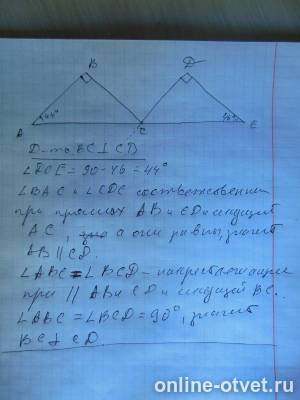 B Д
44° 46°
A C E
Д-ть BC ⊥ CД
∠ДCE = 90 - 46 = 44°
∠BAC и ∠CДE соответственны
при прямых AB и CД и секущей
AC, а они равны, значит
AB || CД.
∠ABC = ∠BCД - накрест лежащие
при || AB и CД и секущей BC.
∠ABC = ∠BCД = 90°, значит
BC ⊥ CД.
online-otvet.ru